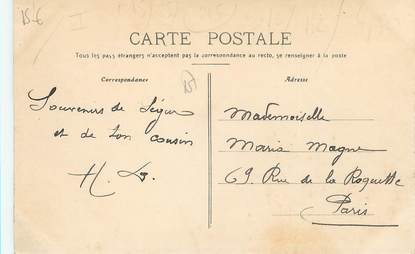 15-6
CARTE POSTALE
Tous les pays étrangers n'acceptent pas la correspondance au recto, se renseigner à la poste
Correspondance
Adresse
Souvenirs de Ségur
et de ton cousin
Mademoiselle
Maria Magne
69 Rue de la Roquette
Paris